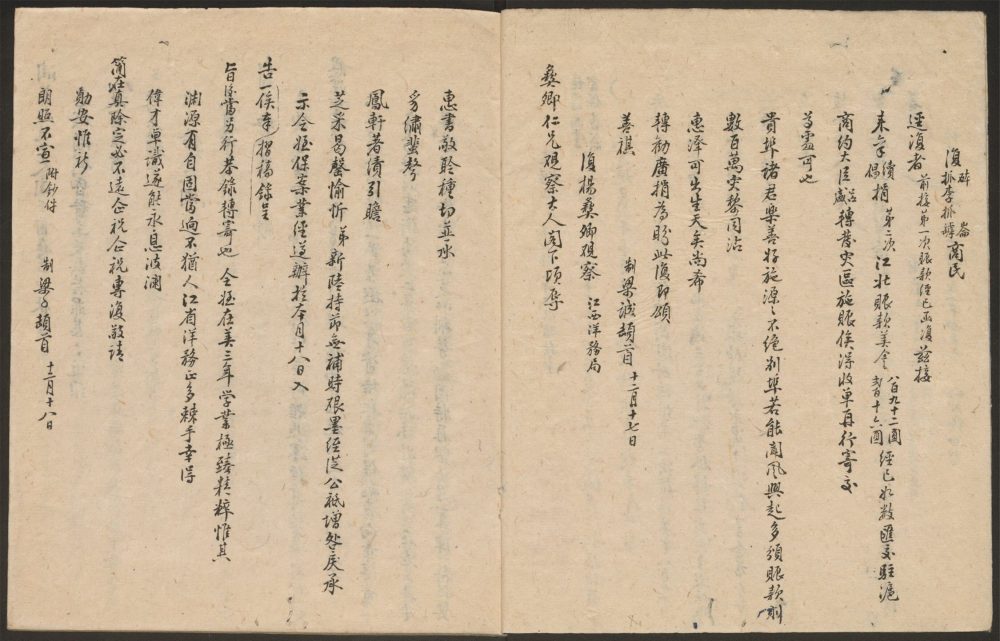 復 李 商民
逕復者 前接第一次賑款經已函復茲接
來字 續捐 第二次江北賑款美金 八百九十二圓 十六圓 經已如數匯交駐滬
商約大臣盛呂轉發災區施賑俟得收單再行寄交
尊處可也
貴埠諸君樂善好施源源不絕別埠若能聞風興起多類賑款則
數百萬災黎同沾
惠澤可出生天矣尚希
轉勸廣捐為盼此復即頌
善祺 制梁誠頓首 十二月十七日
復楊彝卿觀察 江西洋務局
彝卿仁兄觀察大人閣下頃奉
惠書敬聆種切並承
鳳軒耆儐引瞻
芝采曷罄愉忻弟新陸持節無補時艱墨絰從公祗增咎戾承
示令姪保案業經遵辦於本月十八日入
告一俟奉摺稿錄呈
旨後當另行恭錄轉寄也 令姪在美三年學業極臻精粹惟其
淵源有自固當迥不猶人江省洋務正多棘手幸得
偉才卓識遂能永息波瀾
簡在真除定必不遠企祝企祝專復敬請
勛安惟祈
朗照不宣 附鈔件 制梁〻頓首 十二月十八日